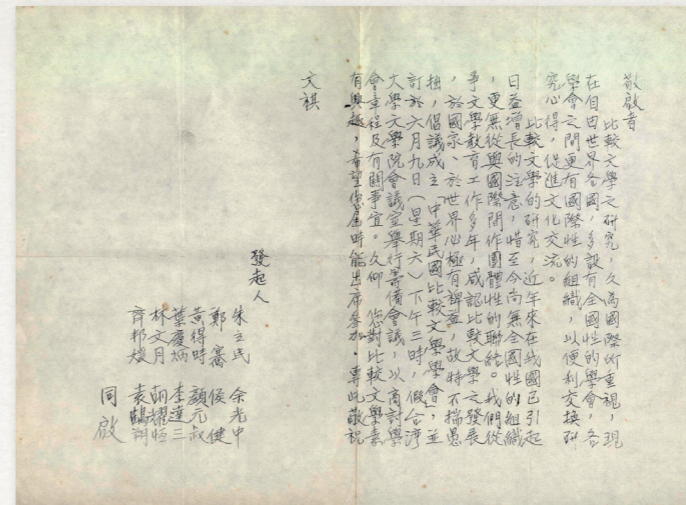 敬啟者：
　　比較文學之研究，久為國際所重視，現
在自由世界各國，多設有全國性的學會，各
學會之間更有國際性的組織，以便利交換研
究心得，促進文化交流。
　　比較文學的研究，近年來在我國已引起
日益增長的注意，惜至今尚無全國性的組織
，更無從與國際間作團體性的聯絡。我們從
事文學教育工作多年，咸認比較文學之發展
，於國家、於世界必極有裨益，故特不揣愚
拙，倡議成立「中華民國比較文學學會」，並
訂於六月九日（星期六）下午三時，假台灣
大學文學院會議室舉行籌備會議，以商討學
會章程及有關事宜。久仰　您對比較文學素
有興趣，希望您屆時能出席參加。專此敬祝
文祺
發起人
朱立民　余光中
鄭騫　侯健
黃得時　顏元叔
葉慶炳　李達三
林文月　胡耀恒
齊邦媛　袁鶴翔
同啟